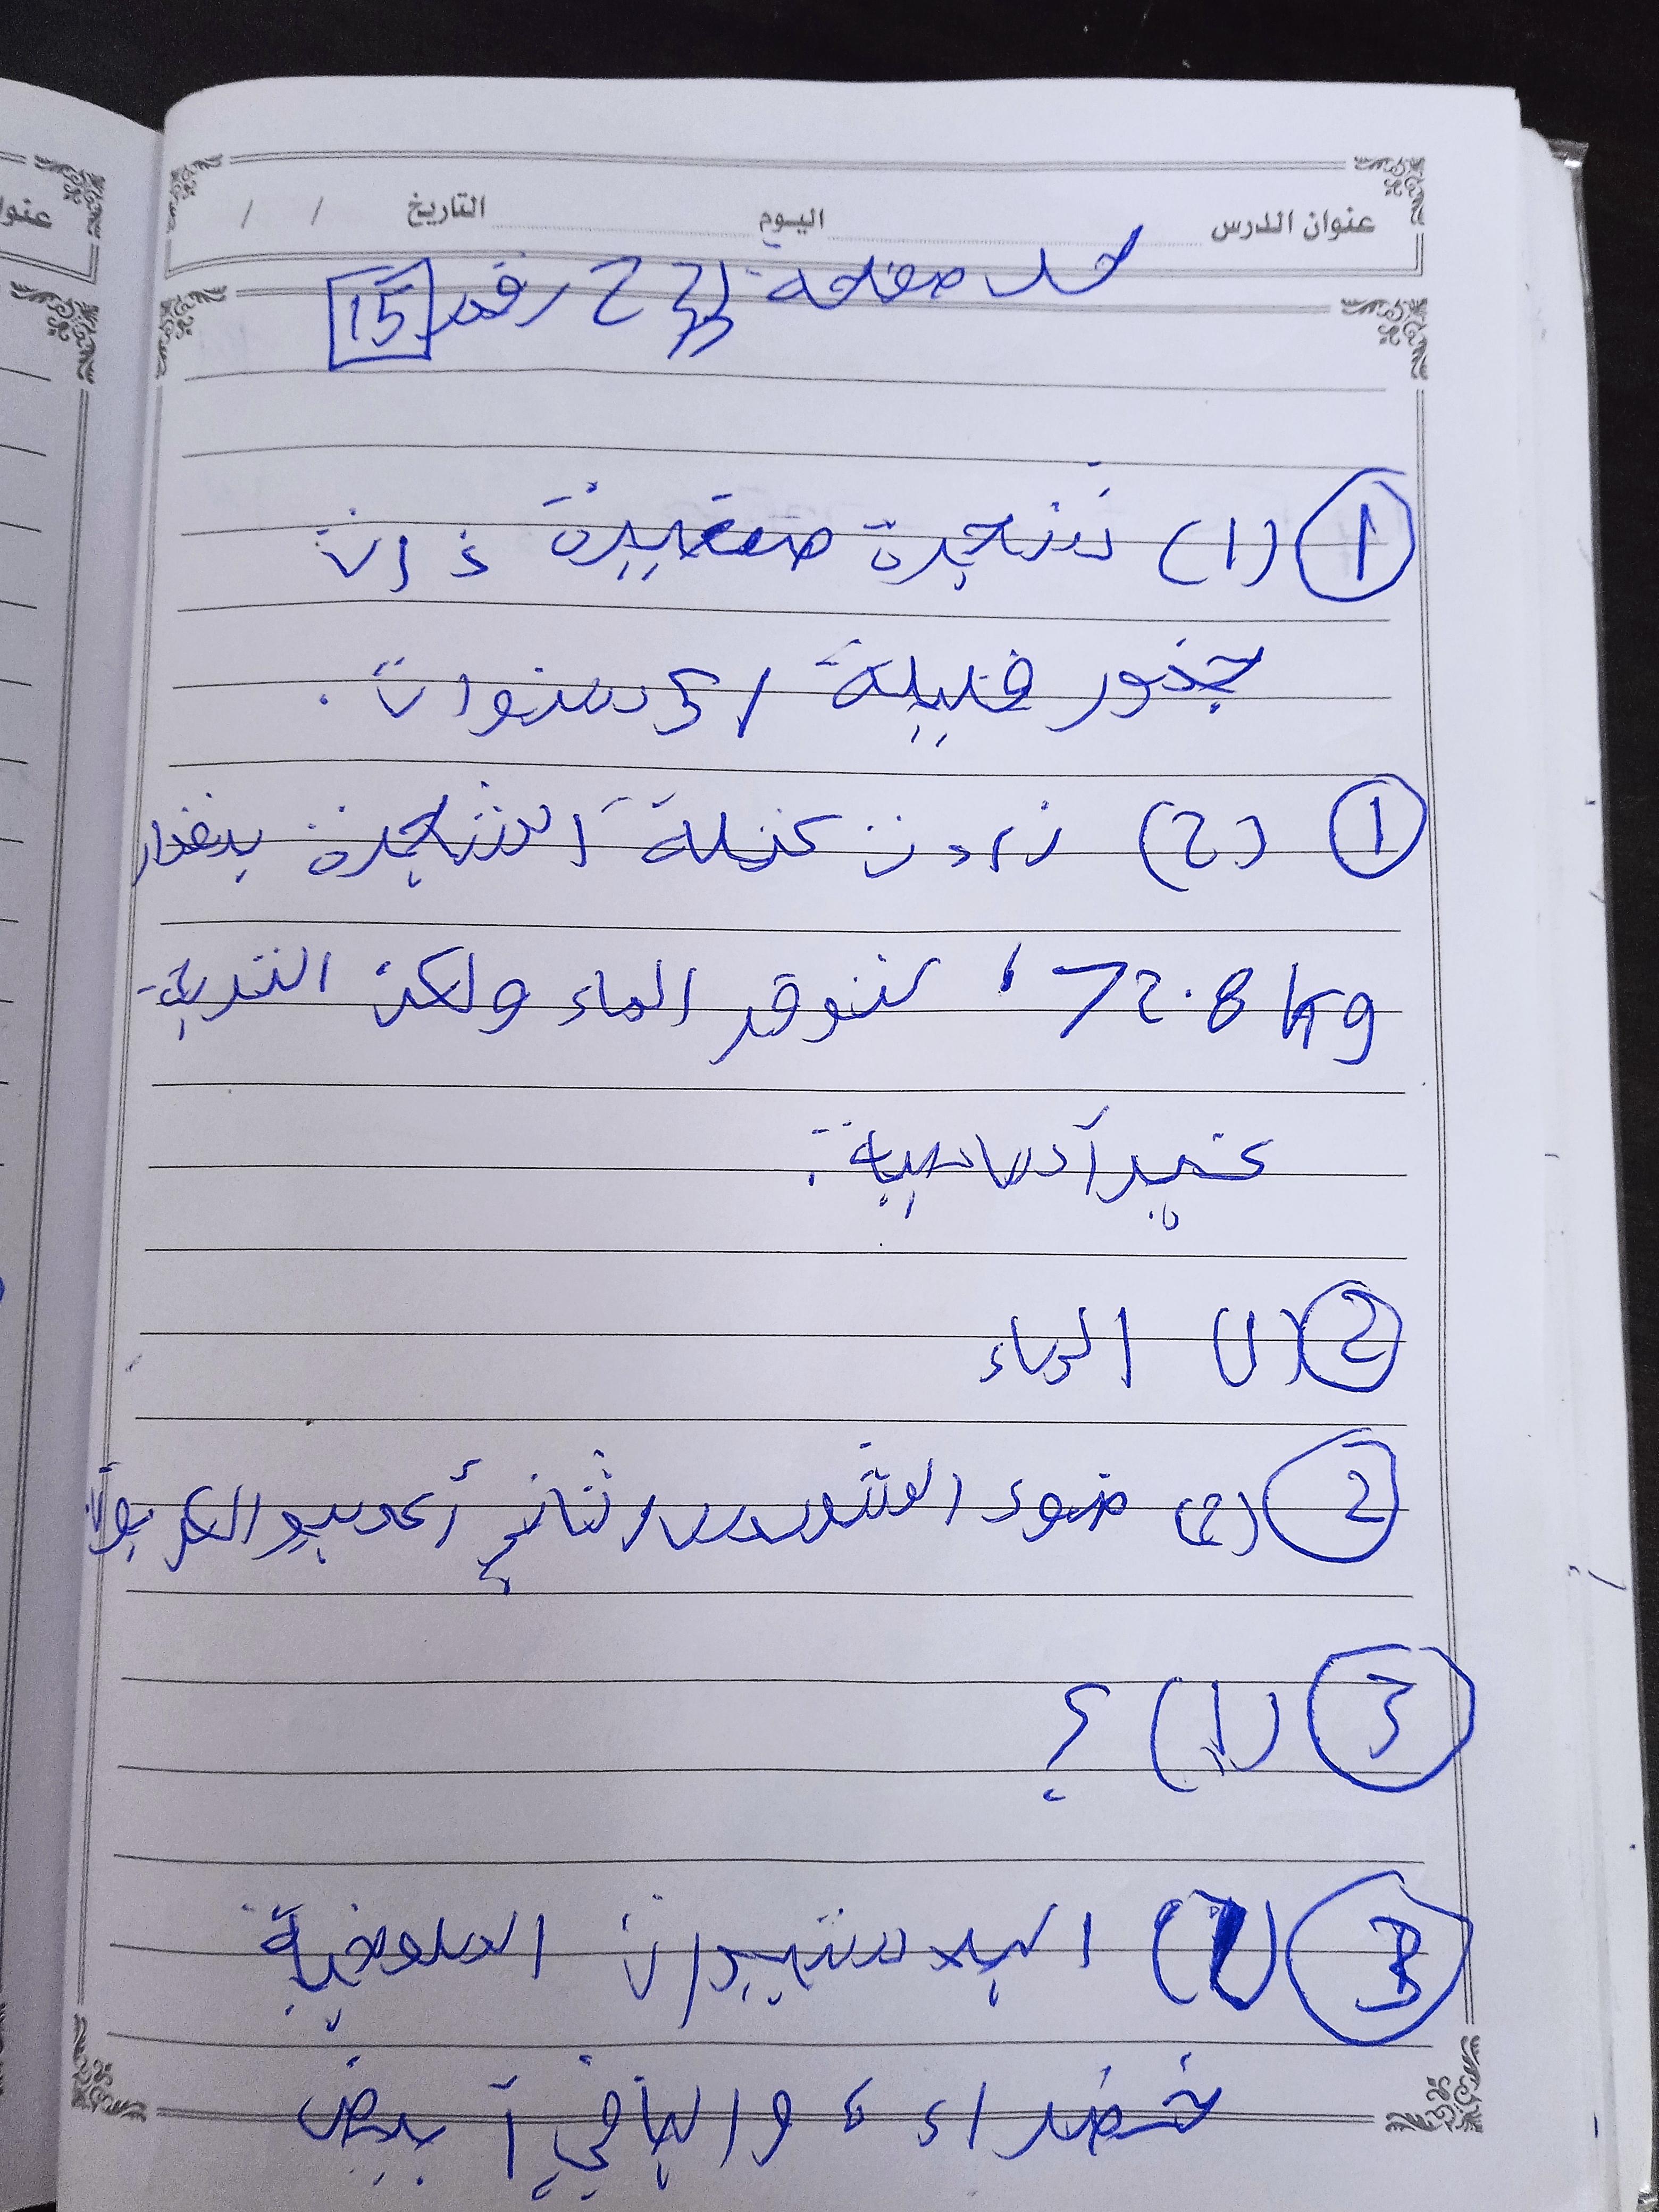 عنوان الدرس اليوم التاريخ / /
حل صفحة 22 رقم 15
1 (1) شجرة صغيرة ذات
جذور قليلة / 5 سنوات .
1 (2) زادت كتلة الشجرة بمقدار
72.8 kg ، تتوفر الماء ولكن التربة
غير أساسية .
2 (1) الماء
2 (2) ضوء الشمس / ثاني أكسيد الكربون
3 (1) ؟
3 (2) البلاستيدات الملونة
خضراء ، والباقي أبيض